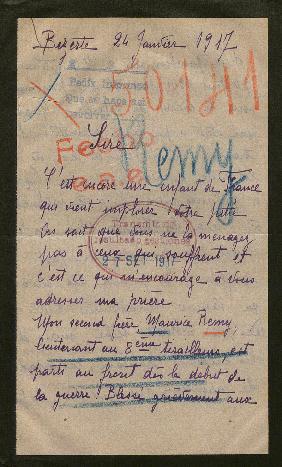 Bizerte 24 Janvier 1917
50141
Sire
Remy
C'est encore une enfant de France
qui vient implorer Votre pitié
On sait que vous ne la ménagez
pas à ceux qui souffrent et
c'est ce qui m'encourage à vous
adresser ma prière
Mon second frère Maurice Remy,
lieutenant au 8ème tirailleurs, est
parti au front dès le début de
la guerre! Blessé grièvement aux
27 SET 1917